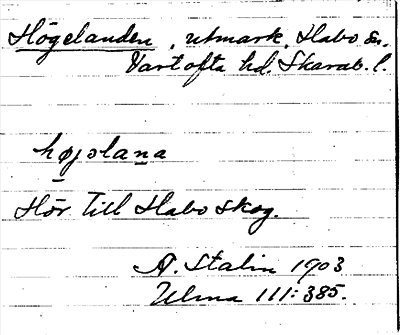 Högelanden, utmark, Habo sn.
Vartofta hd. Skarab. l.
højslana
Hör till Habo skog.
A. Stalin 1903
Ulma 111:385.